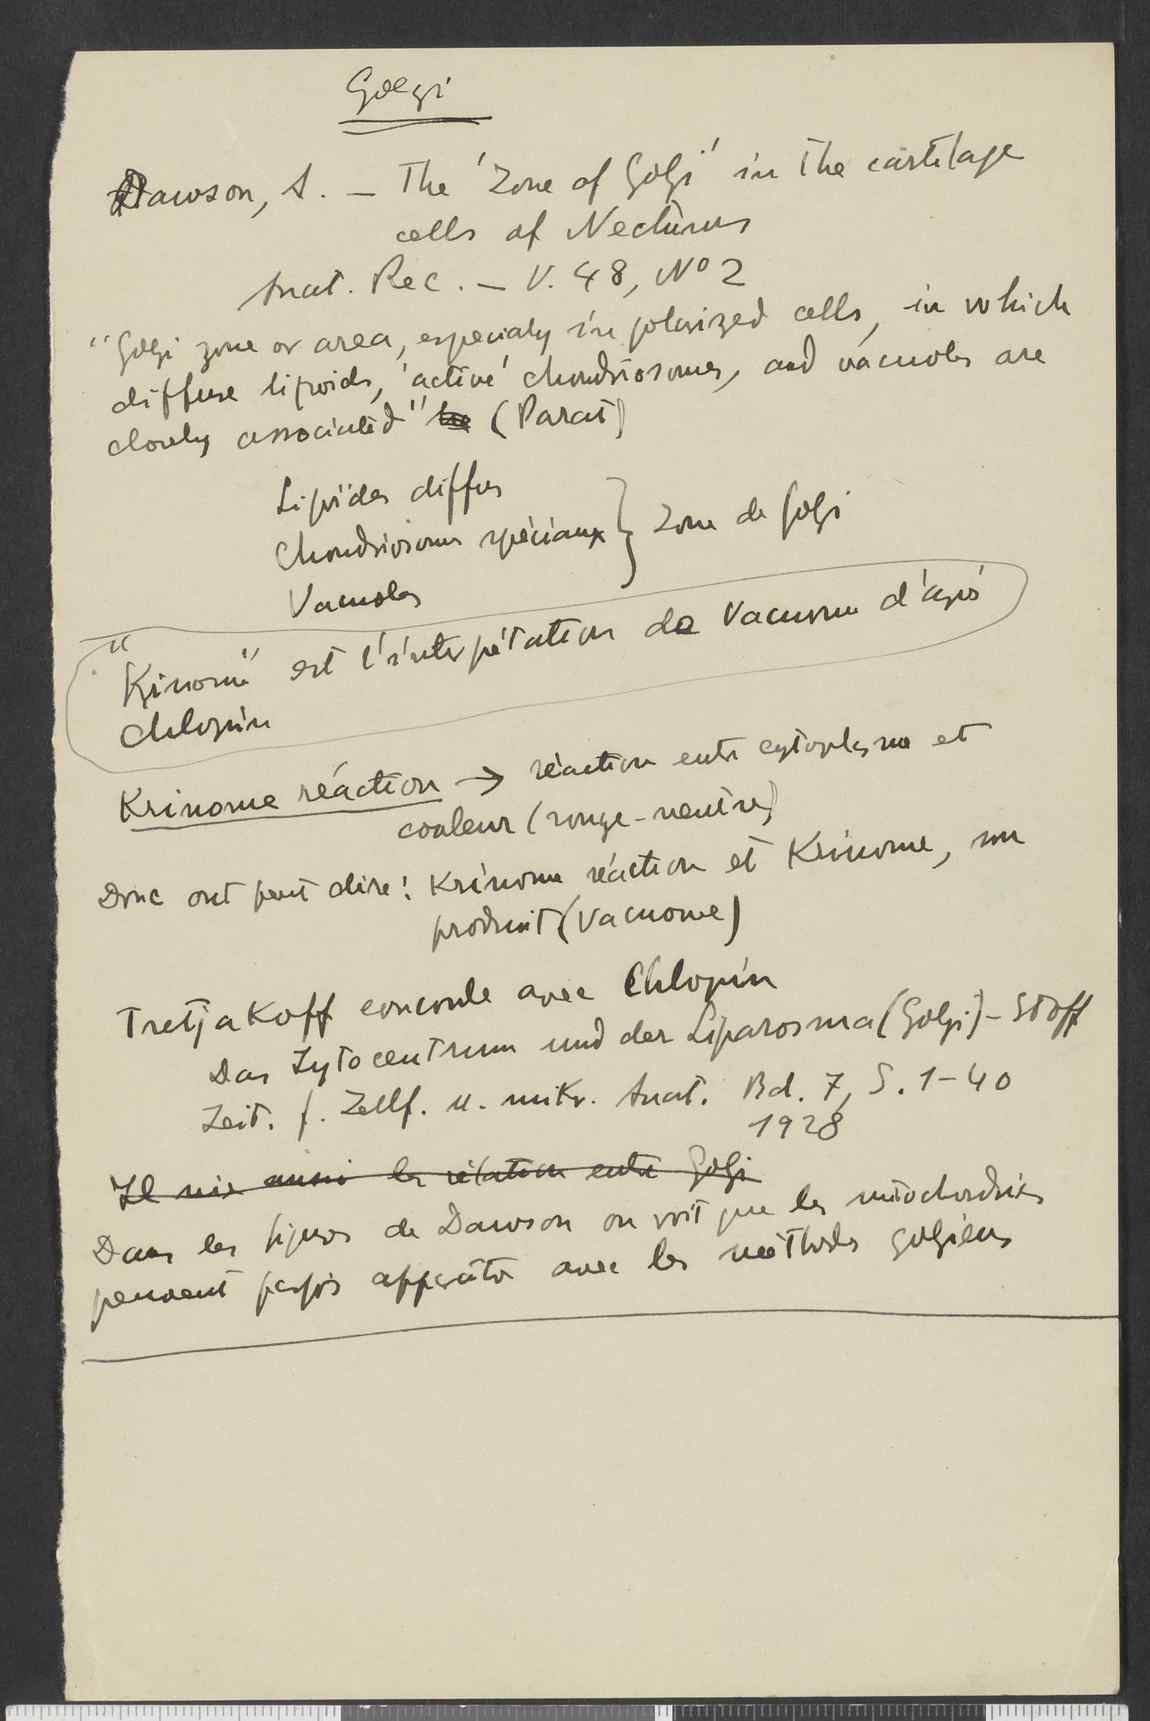 Golgi
Dawson, A. — The 'Zone of Golgi' in the cartilage
cells of Necturus
Anat. Rec. — V. 48, Nº 2
"Golgi zone or area, especialy in polarized cells, in which
diffuse lipoids, 'active' chondriosomes, and vacuoles are
closely associated" (Parat)
Lipoïdes diffus
Chondriosomes spéciaux } Zone de Golgi
Vacuoles
"Krinome" est l'interpétation de Vacuome d'après
Chlopin
Krinome réaction → réaction entre cytoplasma et
couleur (rouge-neutre)
Donc ont peut dire: Krinome réaction et Krinome, un
produit (Vacuome)
Tretjakoff concorde avec Chlopin
Das Zytocentrum und der Liparosma (Golgi)-Stoff
Zeit. f. Zellf. u. mikr. Anat. Bd. 7, S. 1-40
1928
Il nie aussi la rélation entre Golgi
Dans les figures de Dawson on voit que les mitochondries
peuvent parfois apparaître avec les méthodes golgiens